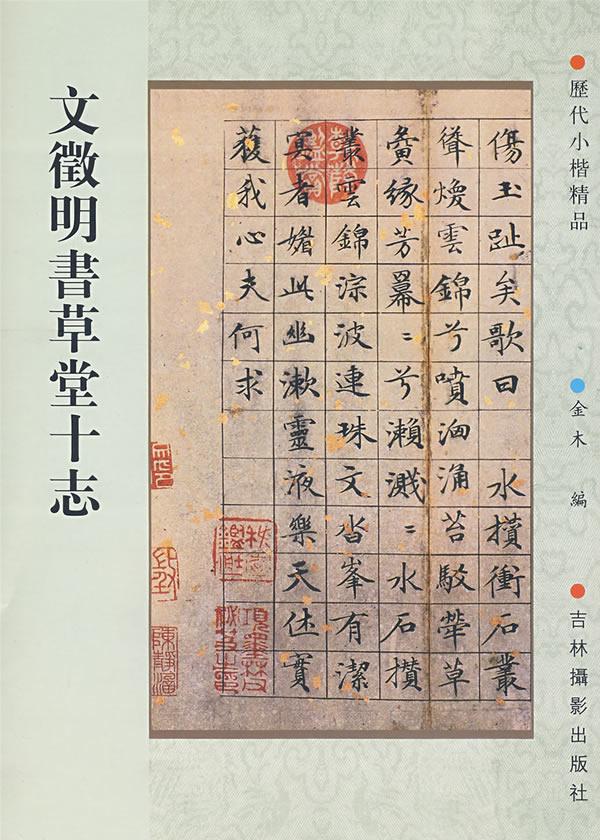 文徵明書草堂十志
歷代小楷精品
金木 編
吉林攝影出版社
傷玉趾矣歌曰 水攢衝石叢
聳煥雲錦兮噴洄涌苔駁犖草
夤緣芳冪〻兮瀨濺〻水石攢
叢雲錦淙波連珠文沓峯有潔
冥者媚此幽漱靈液樂天休實
獲我心夫何求